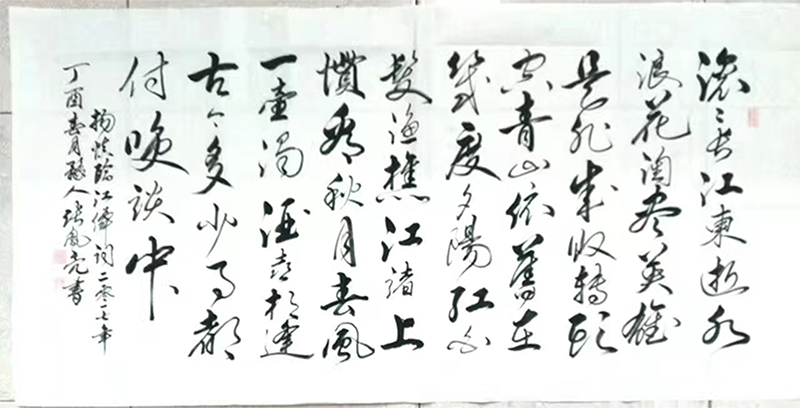 滚滚长江東逝水
浪花淘尽英雄
是非成败转头
空青山依舊在
几度夕陽红白
髮渔樵江渚上
惯看秋月春風
一壶浊酒喜相逢
古今多少事都
付笑谈中
杨慎临江仙词二零一七年
丁酉春月人张凤亮書